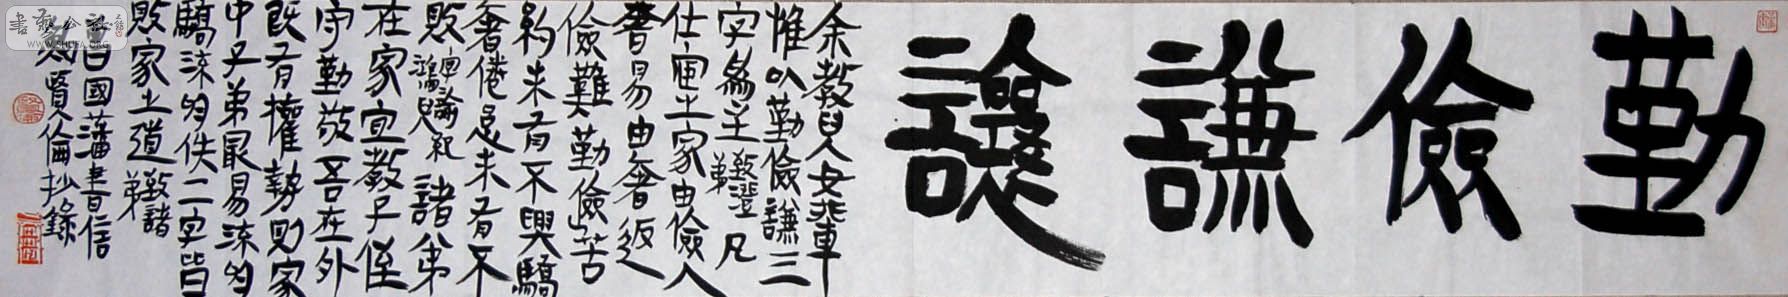 勤儉謙讓
余教兒女輩
惟以勤儉謙三
字為主 致澄弟 凡
仕宦之家由儉入
奢易由奢返
儉難 勤儉苦
約未有不興驕
奢倦怠未有不
敗 字諭紀鴻兒 諸弟
在家宜教子侄
守勤敬吾在外
既有權勢則家
中子弟最易流於
驕流於佚二字皆
敗家之道 致諸弟
曾國藩書信
則賢倫抄錄
WWW.SHUFA.ORG